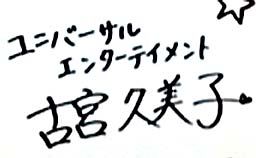 ユニバーサル
エンターテイメント
古宮久美子。